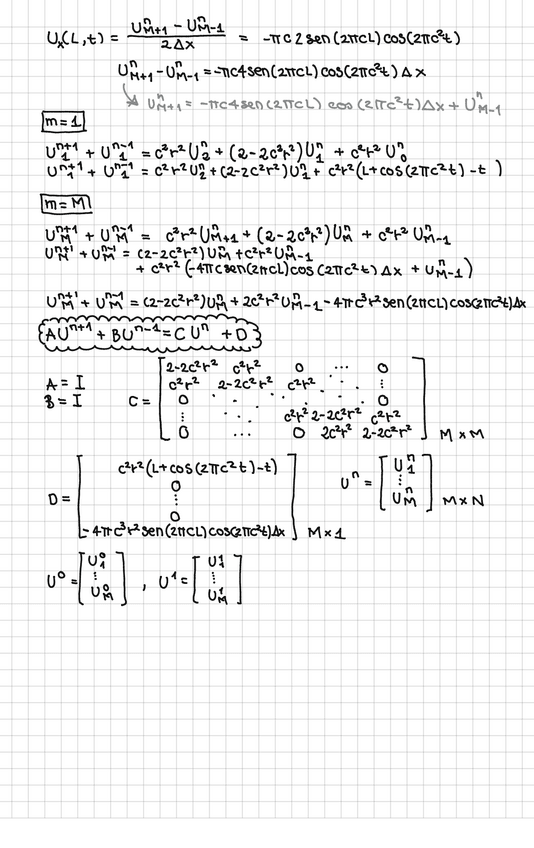 Uₓ(L,t) = (Uⁿ_{M+1} - Uⁿ_{M-1}) / (2Δx) = -πc2sen(2πcL)cos(2πc²t)
Uⁿ_{M+1} - Uⁿ_{M-1} = -πc4sen(2πcL)cos(2πc²t)Δx
↘ Uⁿ_{M+1} = -πc4sen(2πcL)cos(2πc²t)Δx + Uⁿ_{M-1}
m=1
U₁ⁿ⁺¹ + U₁ⁿ⁻¹ = c²r²U₂ⁿ + (2-2c²r²)U₁ⁿ + c²r²U₀ⁿ
U₁ⁿ⁺¹ + U₁ⁿ⁻¹ = c²r²U₂ⁿ + (2-2c²r²)U₁ⁿ + c²r²(L+cos(2πc²t)-t)
m=M
U_Mⁿ⁺¹ + U_Mⁿ⁻¹ = c²r²Uⁿ_{M+1} + (2-2c²r²)U_Mⁿ + c²r²Uⁿ_{M-1}
U_Mⁿ⁺¹ + U_Mⁿ⁻¹ = (2-2c²r²)U_Mⁿ + c²r²Uⁿ_{M-1}
+ c²r²(-4πcsen(2πcL)cos(2πc²t)Δx + Uⁿ_{M-1})
U_Mⁿ⁺¹ + U_Mⁿ⁻¹ = (2-2c²r²)U_Mⁿ + 2c²r²Uⁿ_{M-1} - 4πc³r²sen(2πcL)cos(2πc²t)Δx
AUⁿ⁺¹ + BUⁿ⁻¹ = CUⁿ + D
A = I
B = I
C = [
2-2c²r² c²r² 0 ⋯ 0
c²r² 2-2c²r² c²r² ⋱ ⋮
0 ⋱ ⋱ ⋱ 0
⋮ ⋱ c²r² 2-2c²r² c²r²
0 ⋯ 0 2c²r² 2-2c²r²
] M×M
D = [
c²r²(L+cos(2πc²t)-t)
0
⋮
0
-4πc³r²sen(2πcL)cos(2πc²t)Δx
] M×1
Uⁿ = [
U₁ⁿ
⋮
U_Mⁿ
] M×N
U⁰ = [
U₁⁰
⋮
U_M⁰
] , U¹ = [
U₁¹
⋮
U_M¹
]